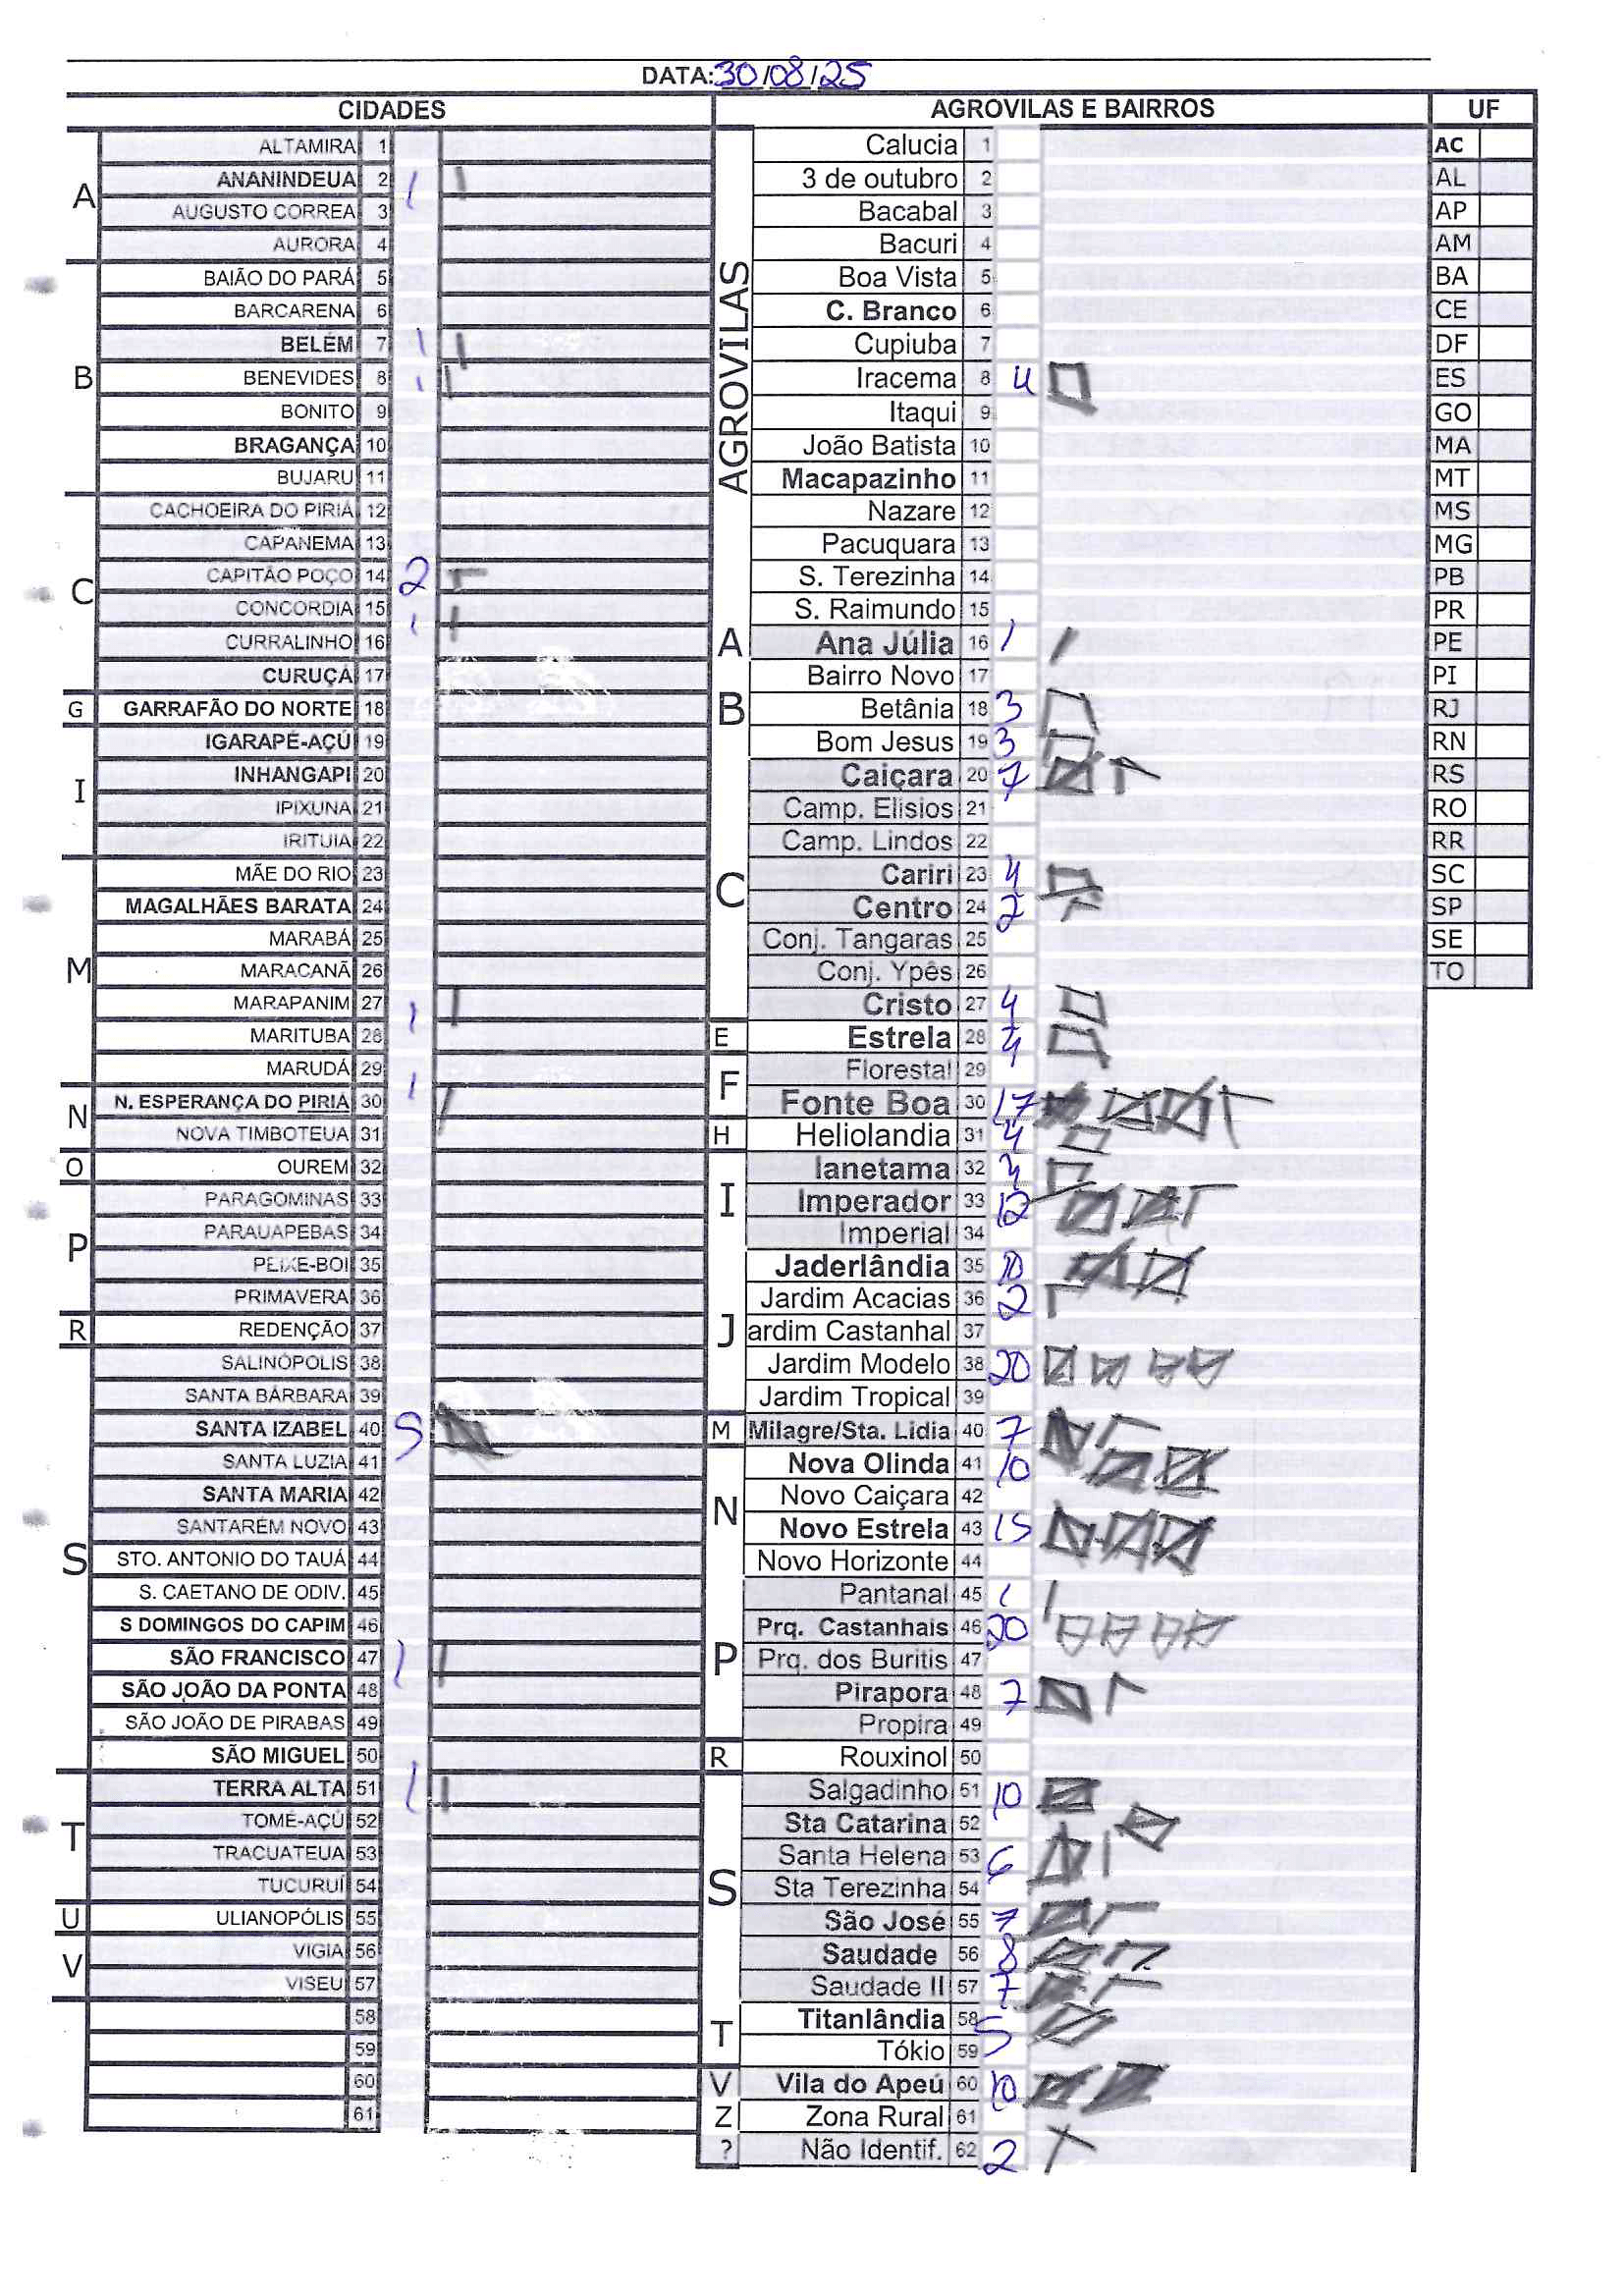 DATA: 30/08/25
CIDADES
A
ALTAMIRA 1
ANANINDEUA 2 1
AUGUSTO CORREA 3
AURORA 4
B
BAIÃO DO PARÁ 5
BARCARENA 6
BELÉM 7 1
BENEVIDES 8 1
BONITO 9
BRAGANÇA 10
BUJARU 11
C
CACHOEIRA DO PIRIÁ 12
CAPANEMA 13
CAPITÃO POÇO 14 2
CONCORDIA 15 1
CURRALINHO 16
CURUÇÁ 17
G
GARRAFÃO DO NORTE 18
I
IGARAPÉ-AÇÚ 19
INHANGAPI 20
IPIXUNA 21
IRITUIA 22
M
MÃE DO RIO 23
MAGALHÃES BARATA 24
MARABÁ 25
MARACANÃ 26
MARAPANIM 27 1
MARITUBA 28
MARUDÁ 29
N
N. ESPERANÇA DO PIRIA 30 1
NOVA TIMBOTEUA 31
O
OUREM 32
P
PARAGOMINAS 33
PARAUAPEBAS 34
PEIXE-BOI 35
PRIMAVERA 36
R
REDENÇÃO 37
S
SALINÓPOLIS 38
SANTA BÁRBARA 39
SANTA IZABEL 40 5
SANTA LUZIA 41
SANTA MARIA 42
SANTARÉM NOVO 43
STO. ANTONIO DO TAUÁ 44
S. CAETANO DE ODIV. 45
S DOMINGOS DO CAPIM 46
SÃO FRANCISCO 47 1
SÃO JOÃO DA PONTA 48
SÃO JOÃO DE PIRABAS 49
SÃO MIGUEL 50
T
TERRA ALTA 51 1
TOMÉ-AÇÚ 52
TRACUATEUA 53
TUCURUÍ 54
U
ULIANOPÓLIS 55
V
VIGIA 56
VISEU 57
58
59
60
61
AGROVILAS E BAIRROS
AGROVILAS
Calucia 1
3 de outubro 2
Bacabal 3
Bacuri 4
Boa Vista 5
C. Branco 6
Cupiuba 7
Iracema 8 4
Itaqui 9
João Batista 10
Macapazinho 11
Nazare 12
Pacuquara 13
S. Terezinha 14
S. Raimundo 15
A
Ana Júlia 16 1
B
Bairro Novo 17
Betânia 18 3
Bom Jesus 19 3
C
Caiçara 20 7
Camp. Elisios 21
Camp. Lindos 22
Cariri 23 4
Centro 24 2
Conj. Tangaras 25
Conj. Ypês 26
Cristo 27 4
E
Estrela 28 4
F
Florestal 29
Fonte Boa 30 17
H
Heliolandia 31 4
I
Ianetama 32 3
Imperador 33 12
Imperial 34
J
Jaderlândia 35 10
Jardim Acacias 36 2
ardim Castanhal 37
Jardim Modelo 38 20
Jardim Tropical 39
M
Milagre/Sta. Lidia 40 7
N
Nova Olinda 41 10
Novo Caiçara 42
Novo Estrela 43 15
Novo Horizonte 44
P
Pantanal 45 1
Prq. Castanhais 46 20
Prq. dos Buritis 47
Pirapora 48 7
Propira 49
R
Rouxinol 50
S
Salgadinho 51 10
Sta Catarina 52
Santa Helena 53 6
Sta Terezinha 54
São José 55 7
Saudade 56 8
Saudade II 57 7
T
Titanlândia 58 5
Tókio 59
V
Vila do Apeú 60 10
Z
Zona Rural 61
?
Não Identif. 62 2
UF
AC
AL
AP
AM
BA
CE
DF
ES
GO
MA
MT
MS
MG
PB
PR
PE
PI
RJ
RN
RS
RO
RR
SC
SP
SE
TO